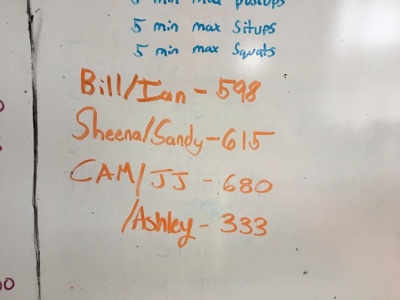 5 min max pushups
5 min max Situps
5 min max Squats
Bill/Ian - 598
Sheena/Sandy - 615
CAM/JJ - 680
/Ashley - 333